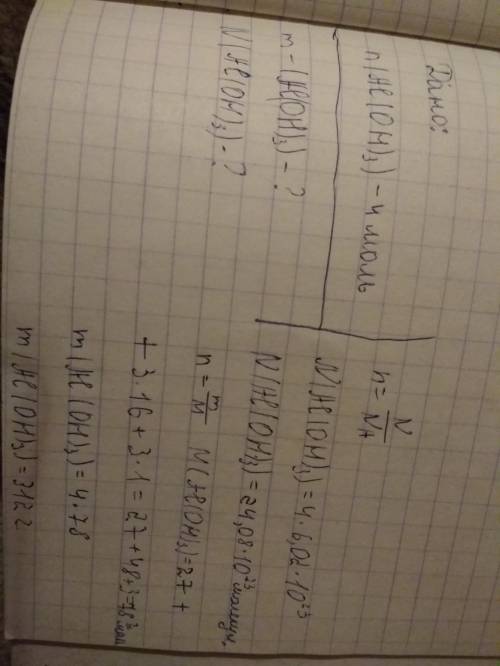 Дано:
n(Al(OH)3) - 4 моль
m - (Al(OH)3) - ?
N(Al(OH)3) - ?
n = N/NA
N(Al(OH)3) = 4 · 6,02 · 10^23
N(Al(OH)3) = 24,08 · 10^23 молекул.
n = m/M M(Al(OH)3) = 27 +
+ 3·16 + 3·1 = 27 + 48 + 3 = 78 г/моль
m(Al(OH)3) = 4 · 78
m(Al(OH)3) = 312 г